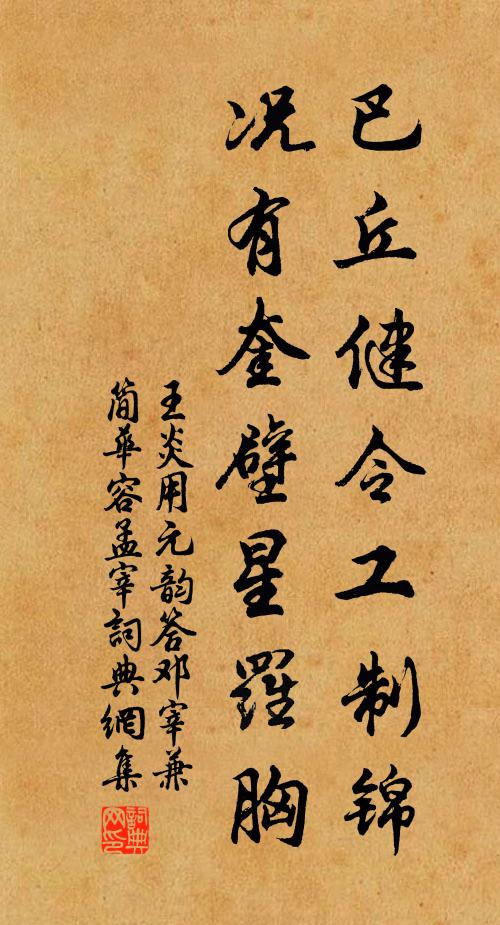 巴丘健令工制锦
况有奎壁星羅胸
王炎用元韵答邓宰兼
简華容孟宰詞典網集
詞典网印